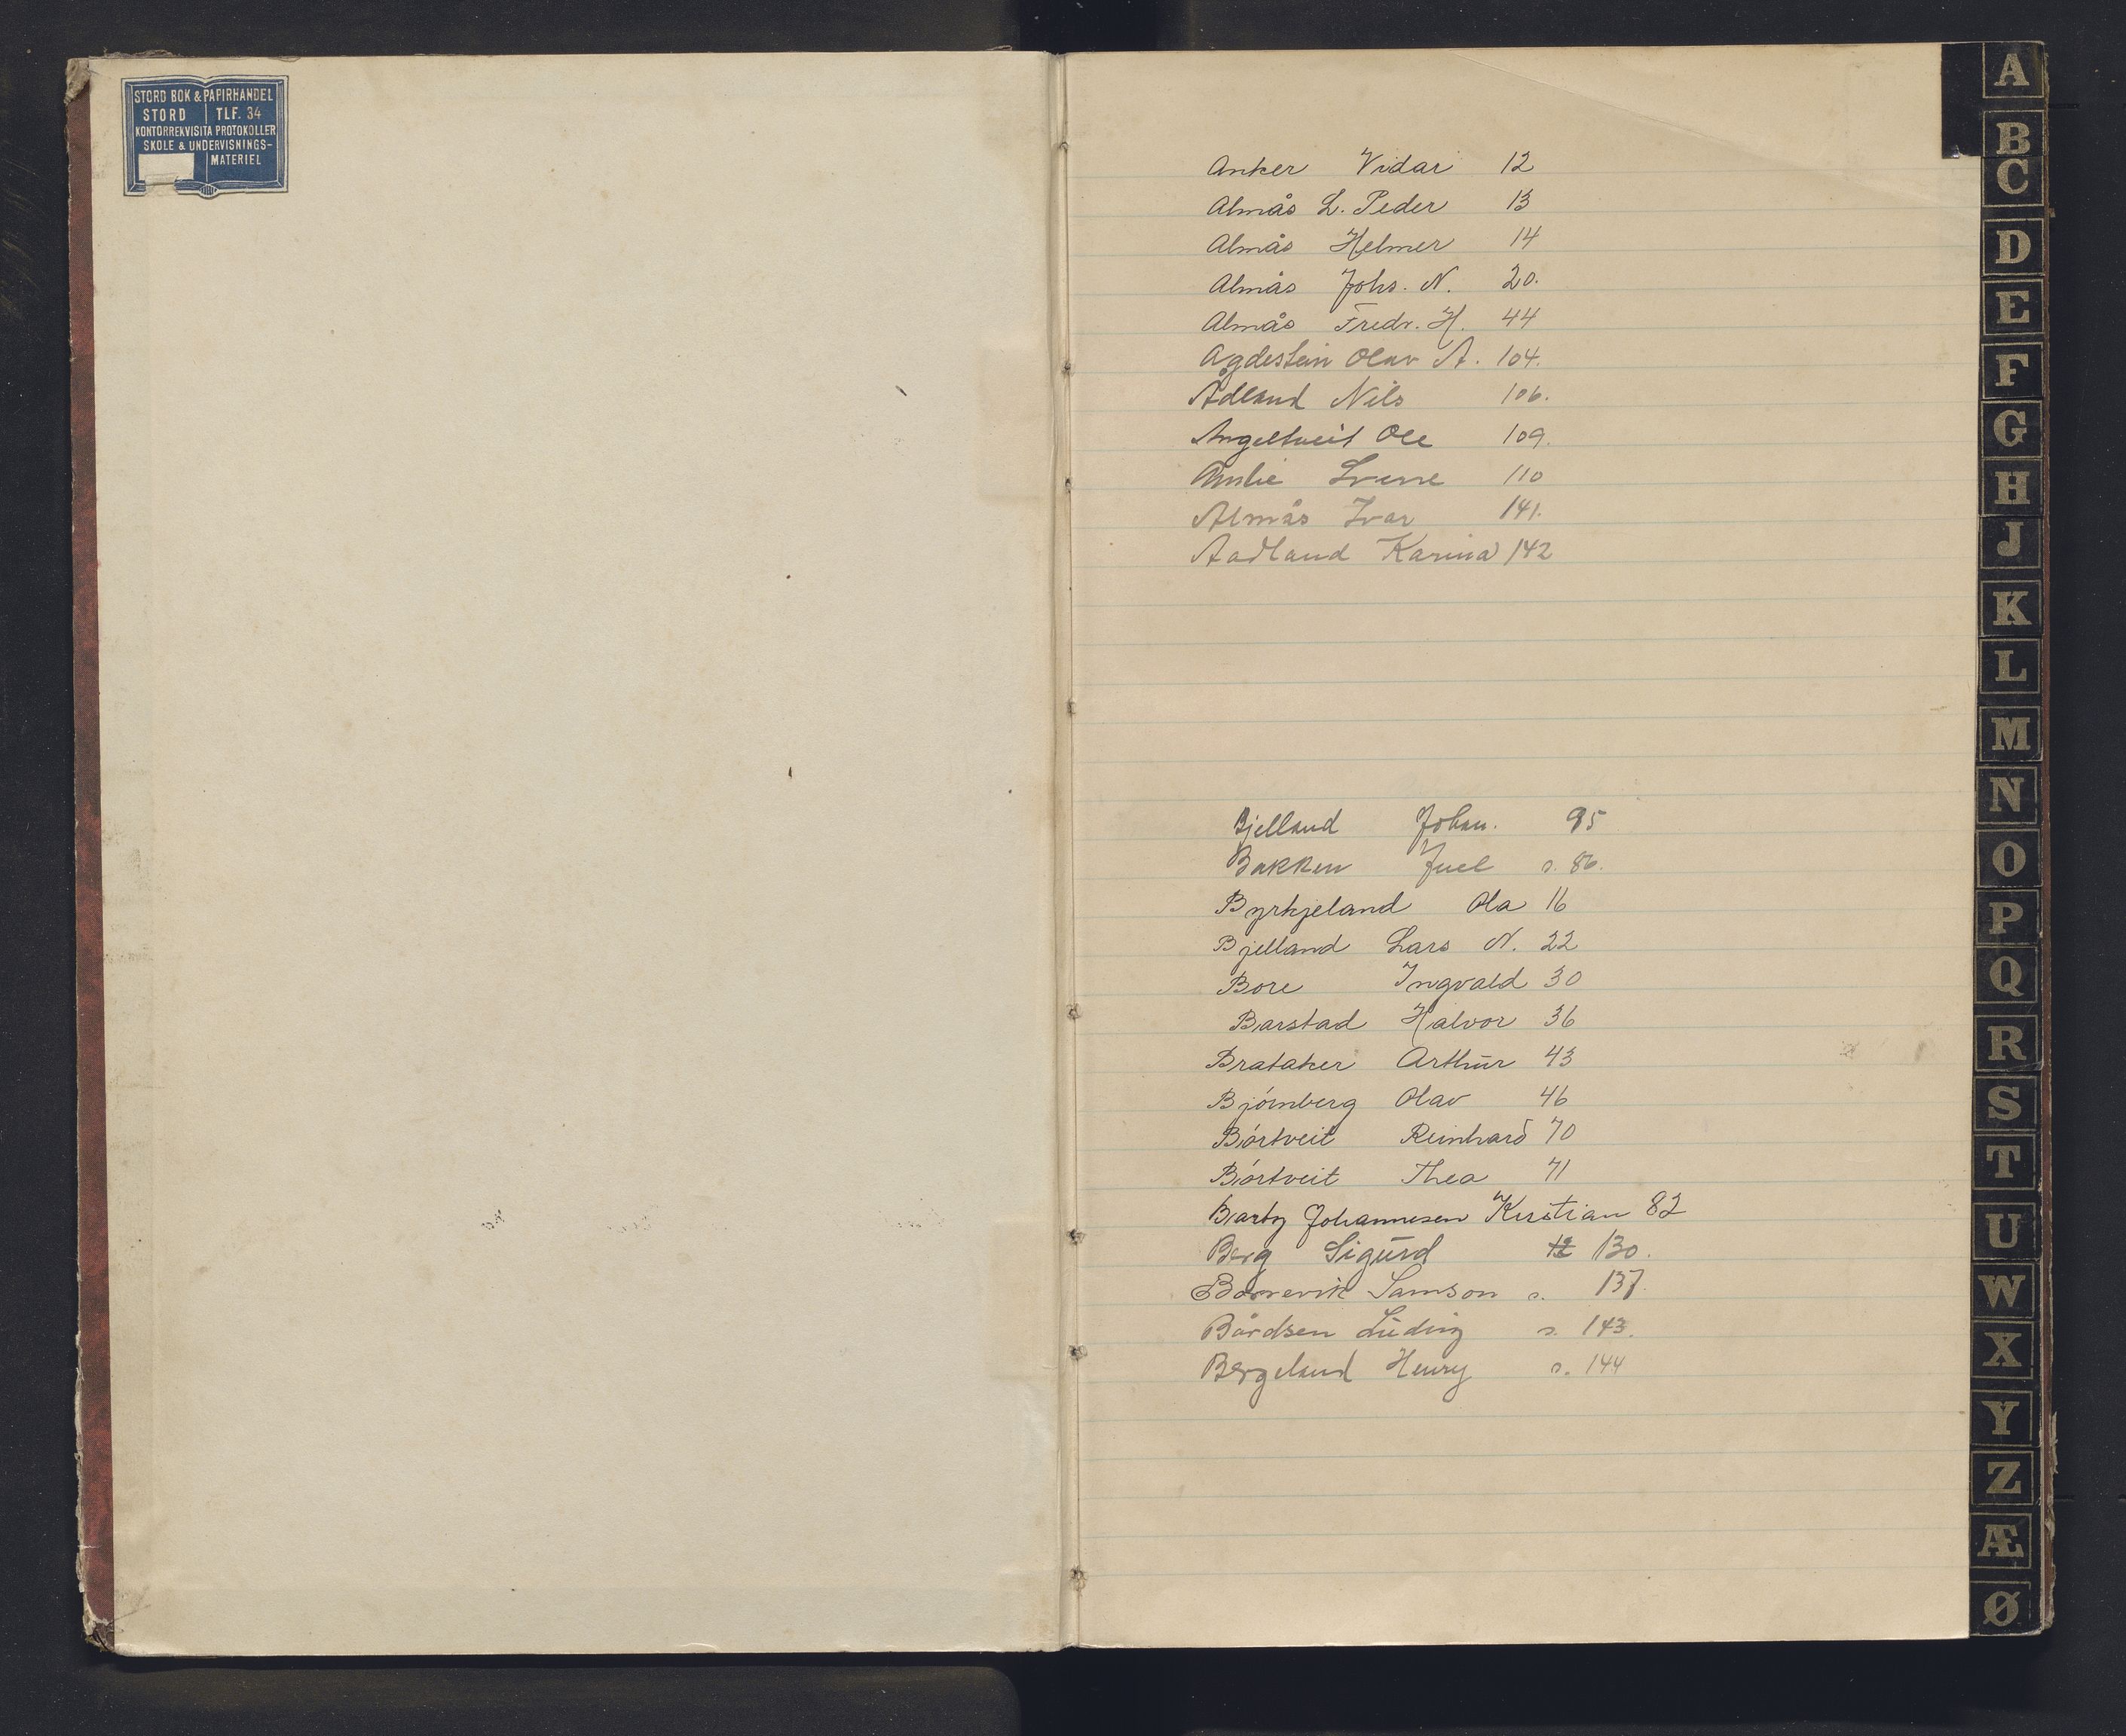 STORD BOK & PAPIRHANDEL
STORD TLF. 34
KONTORREKVISITA PROTOKOLLER
SKOLE & UNDERVISNINGS-
MATERIEL
Anker Vidar 12
Almås L. Peder 13
Almås Helmer 14
Almås Johs. N. 20.
Almås Fredr. H. 44
Agdestein Olav A. 104.
Ådland Nils 106.
Angeltveit Ole 109.
Sverre 110
Almås Ivar 141.
Aadland Karina 142
Bjelland Johan. 95
Bakken Juel s. 86.
Byrkjeland Ola 16
Bjelland Lars N. 22
Bore Ingvald 30
Barstad Halvor 36
Brataker Arthur 43
Bjórnberg Olav 46
Bórtveit Reinhard 70
Bórtveit Thea 71
Barby Johannesen Kristian 82
Berg Sigurd 12 130.
Samson s. 137.
Bårdsen Luding s. 143.
Bergeland Henry s. 144
A
B
C
D
E
F
G
H
J
K
L
M
N
O
P
Q
R
S
T
U
W
X
Y
Z
Æ
Ø